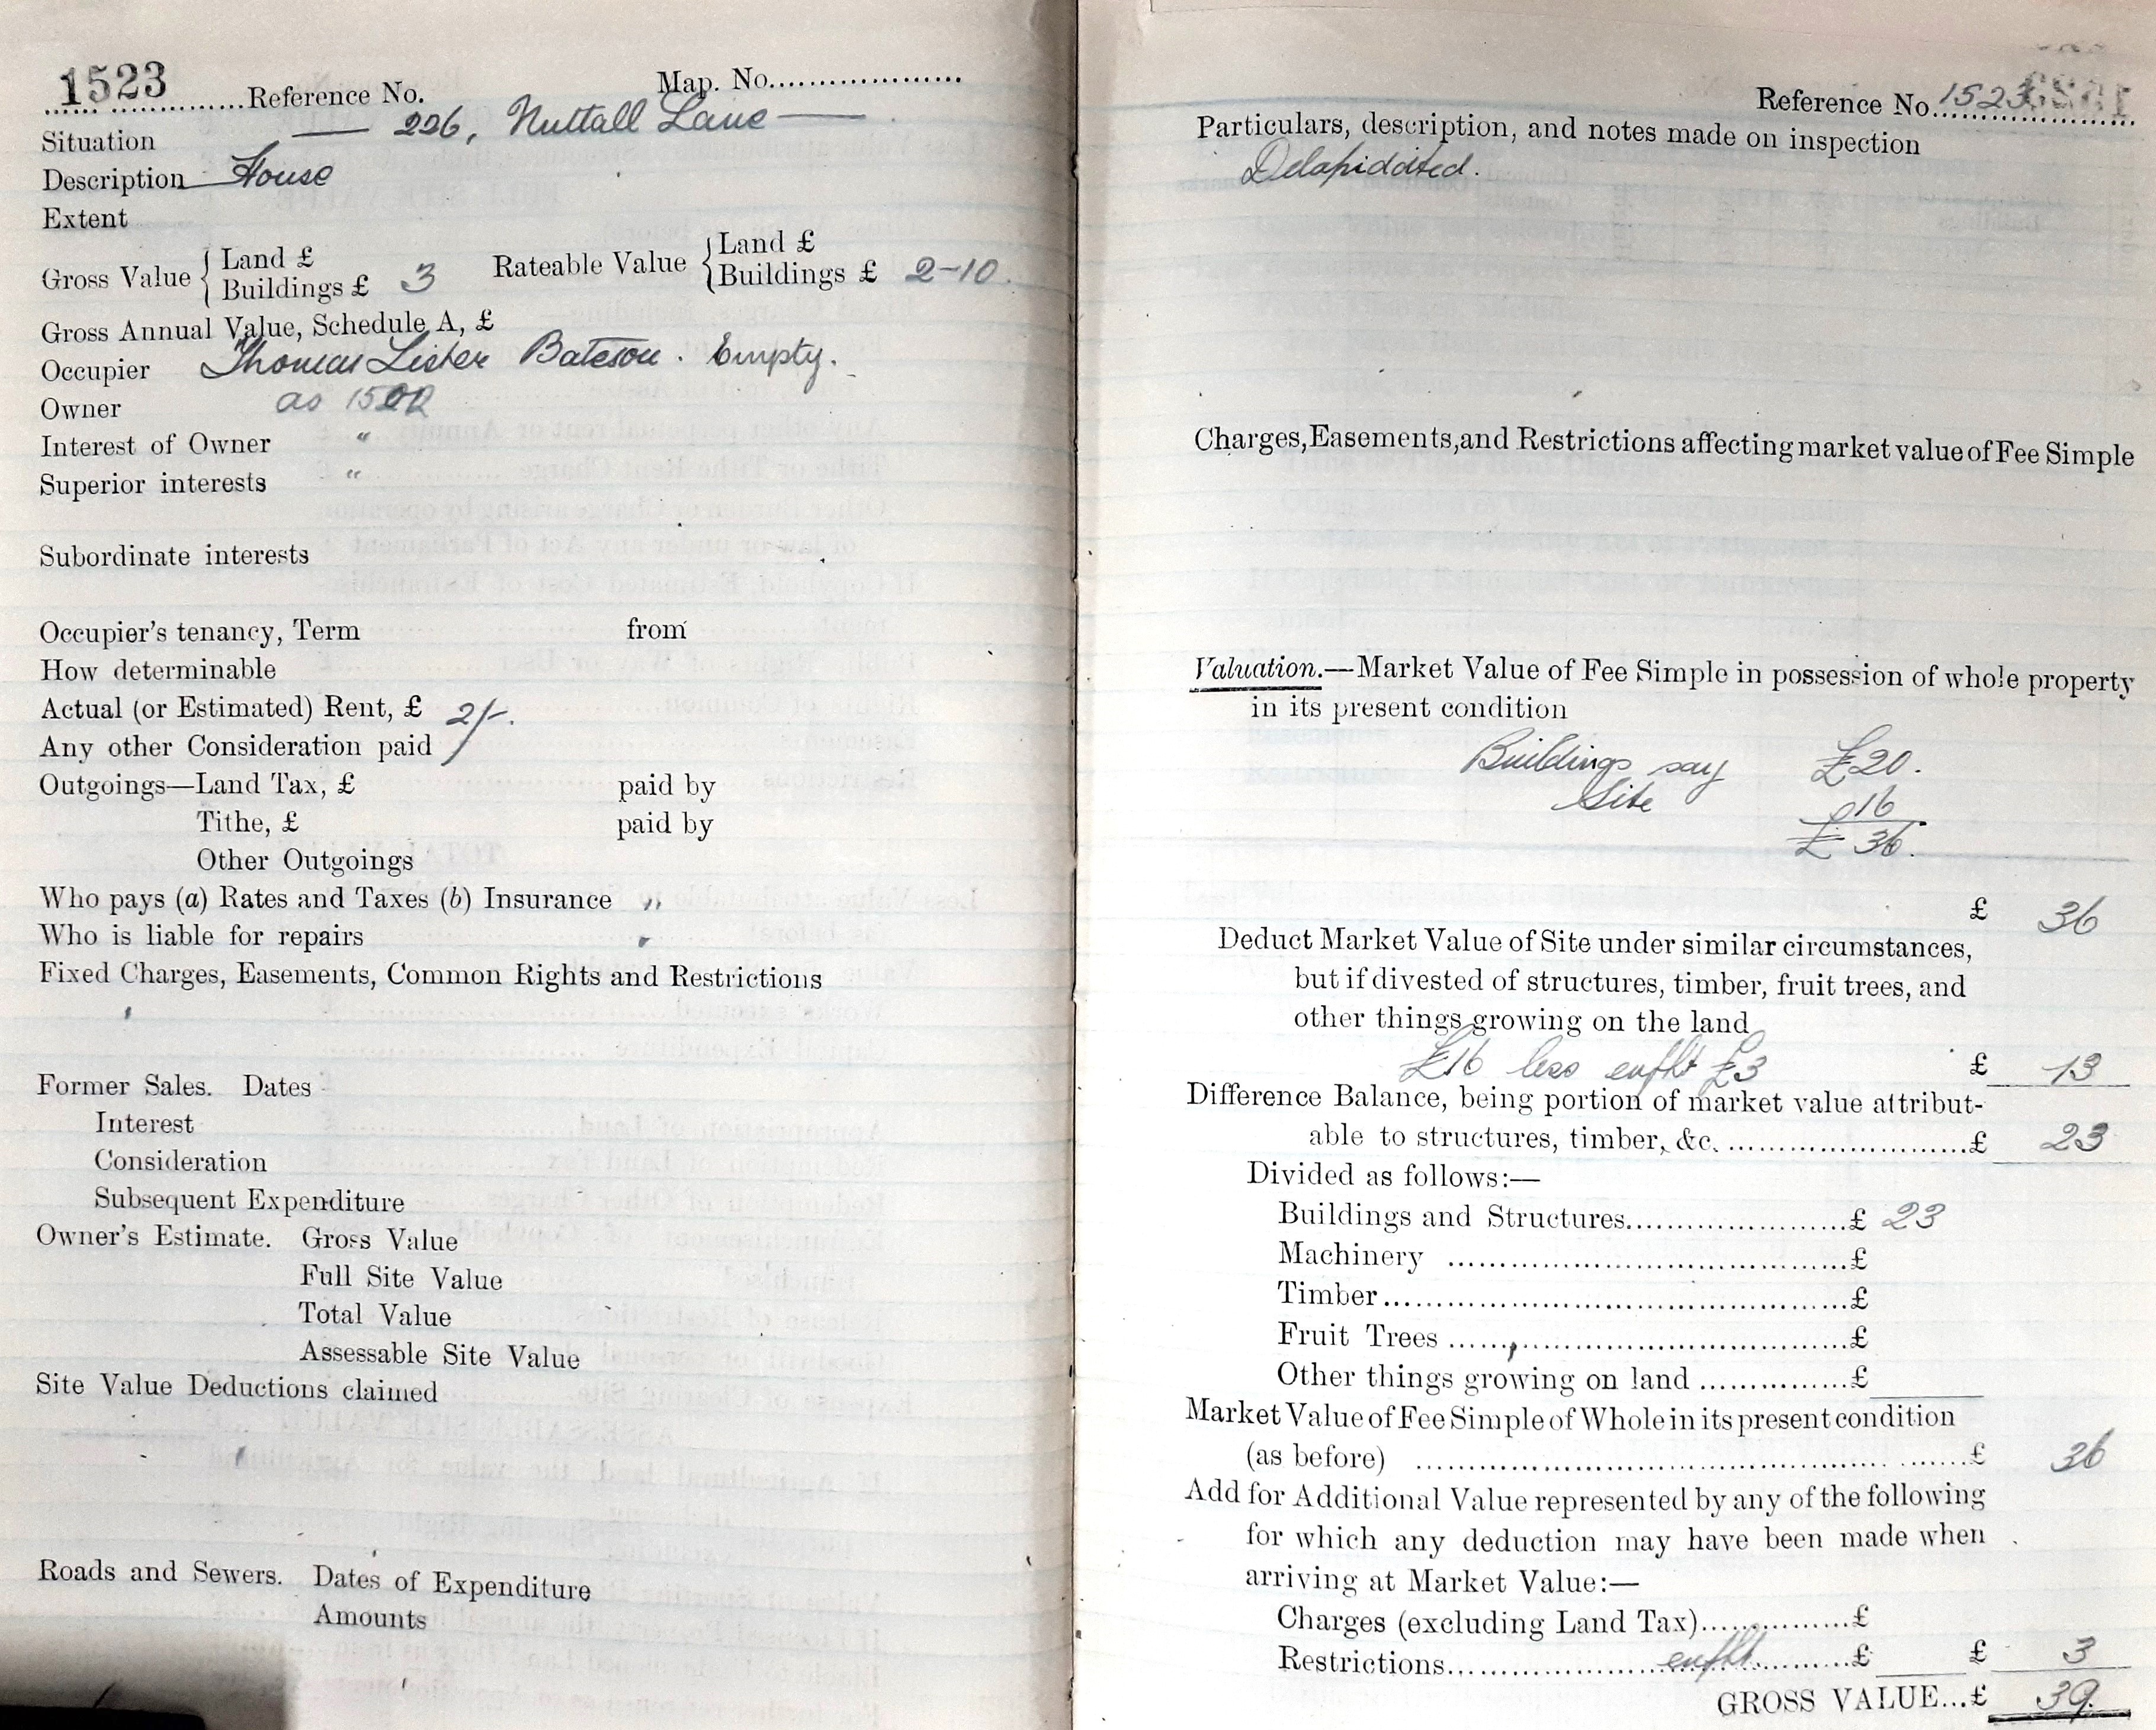 1523
Reference No. Map. No.
Situation — 226, Nuttall Lane —
Description House
Extent
Gross Value { Land £
Buildings £ 3
Rateable Value { Land £
Buildings £ 2-10.
Gross Annual Value, Schedule A, £
Occupier Thomas Lister Bateson. Empty.
Owner as
Interest of Owner "
Superior interests "
Subordinate interests
Occupier's tenancy, Term from
How determinable
Actual (or Estimated) Rent, £ 2/-.
Any other Consideration paid
Outgoings—Land Tax, £ paid by
Tithe, £ paid by
Other Outgoings
Who pays (a) Rates and Taxes (b) Insurance "
Who is liable for repairs "
Fixed Charges, Easements, Common Rights and Restrictions
Former Sales. Dates
Interest
Consideration
Subsequent Expenditure
Owner's Estimate. Gross Value
Full Site Value
Total Value
Assessable Site Value
Site Value Deductions claimed
Roads and Sewers. Dates of Expenditure
Amounts
Reference No. 1523
Particulars, description, and notes made on inspection
Delapidated.
Charges, Easements, and Restrictions affecting market value of Fee Simple
Valuation.—Market Value of Fee Simple in possession of whole property
in its present condition
Buildings say £20.
Site 16
£36.
£ 36
Deduct Market Value of Site under similar circumstances,
but if divested of structures, timber, fruit trees, and
other things growing on the land
£16 less enfht £3 £ 13
Difference Balance, being portion of market value attribut-
able to structures, timber, &c. £ 23
Divided as follows:—
Buildings and Structures £ 23
Machinery £
Timber £
Fruit Trees £
Other things growing on land £
Market Value of Fee Simple of Whole in its present condition
(as before) £ 36
Add for Additional Value represented by any of the following
for which any deduction may have been made when
arriving at Market Value:—
Charges (excluding Land Tax) £
Restrictions enfht. £ £ 3
GROSS VALUE...£ 39.